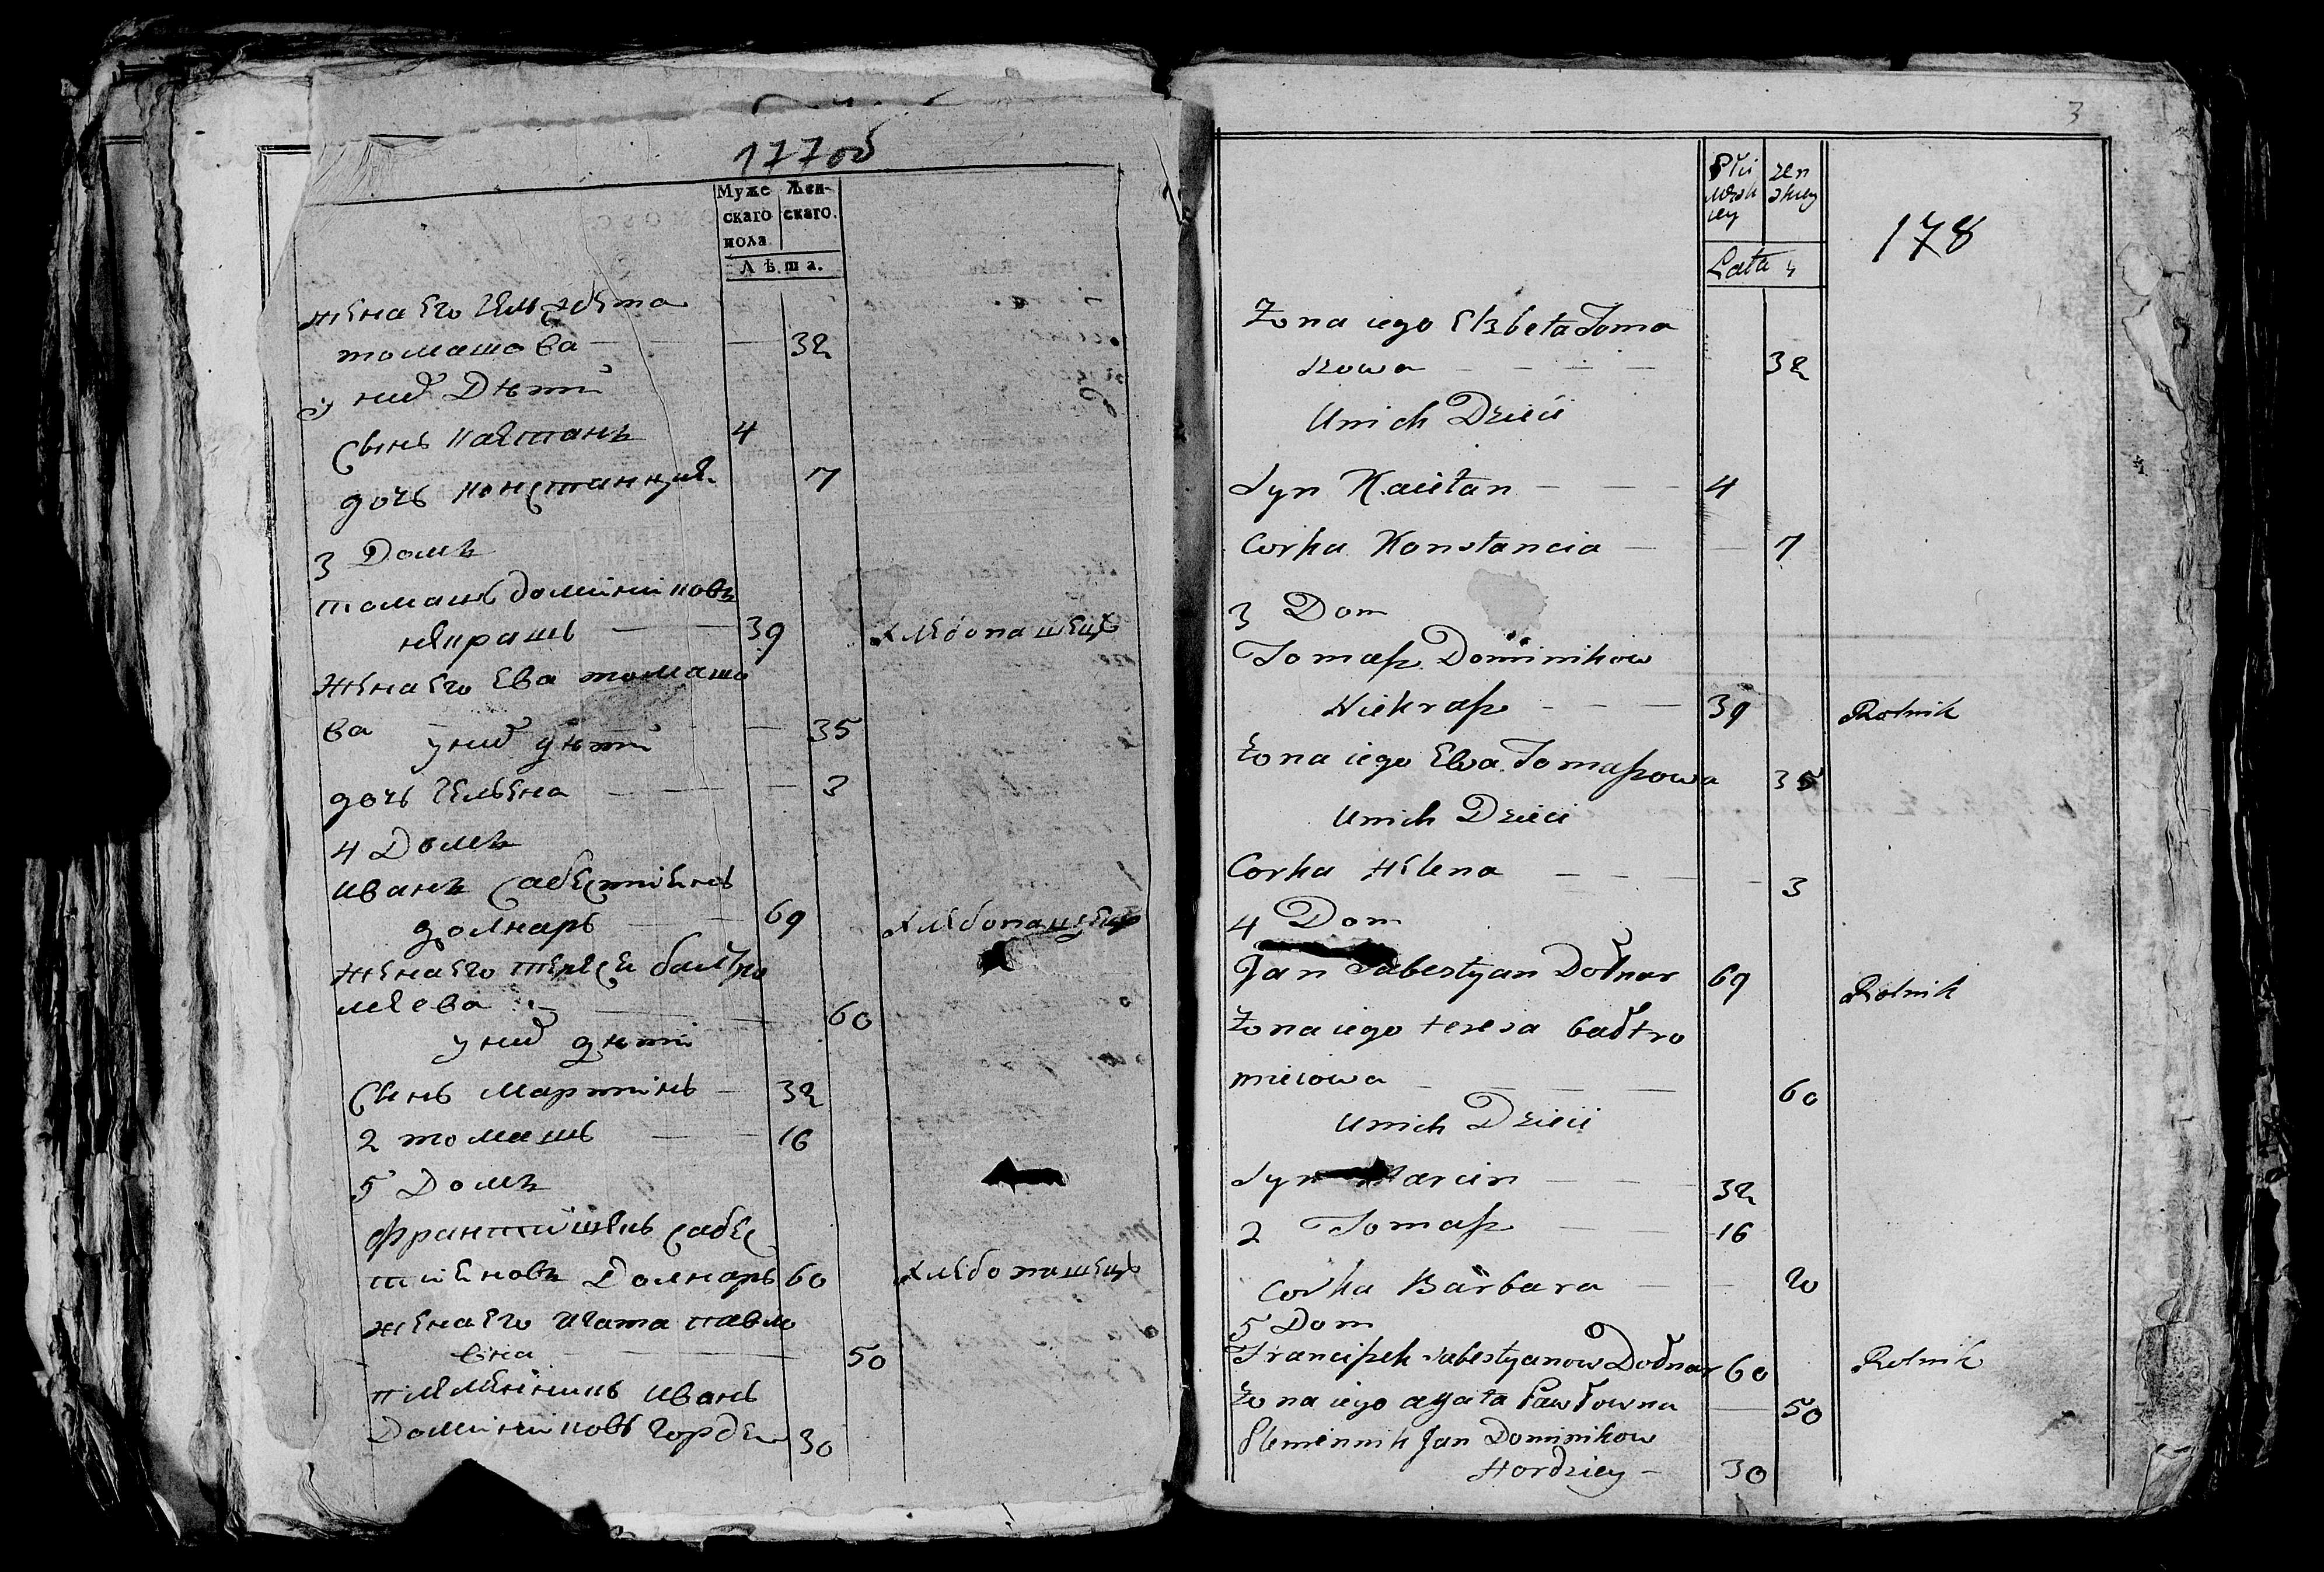 177 об
Муже
скаго
пола
Жен-
скаго.
Лѣта.
жена его гельжбета
томашова 32
у них Дѣти
сынъ каетанъ 4
дочь констанция 7
3 Домъ
томашъ доминиковъ
некрашъ 39 хлебопашецъ
жена его Ева томашо
ва 35
у них дѣти
дочь гельена 3
4 Домъ
иванъ сабестиенъ
долнаръ 69 хлебопашецъ
жена его
60
у них дѣти
сынъ мартинъ 32
2 томашъ 16
5 Домъ
францишекъ сабес
тиеновъ Долнаръ 60 хлебопашецъ
жена его агата павло
вна 50
племенникъ иванъ
Доминиковъ гордей 30
3
Płci
męsk
iey
żen
skiey
178
Lata
Żona iego Elzbeta Toma
szowa 32
U nich Dzieci
Syn Kaietan 4
Corka Konstancia 7
3 Dom
Tomasz Dominikow
Niekrasz 39 Rolnik
Żona iego Ewa Tomaszowa 35
U nich Dzieci
Corka Helena 3
4 Dom
Jan Sabestyan Dołnar 69 Rolnik
Żona iego teresa bałtro
mieiowa 60
U nich Dzieci
Syn Marcin 32
2 Tomasz 16
Corka Barbara 20
5 Dom
Franciszek Sabestyanow Dołnar 60 Rolnik
Żona iego agata Pawłowna 50
Plemiennik Jan Dominikow
Hordziey 30